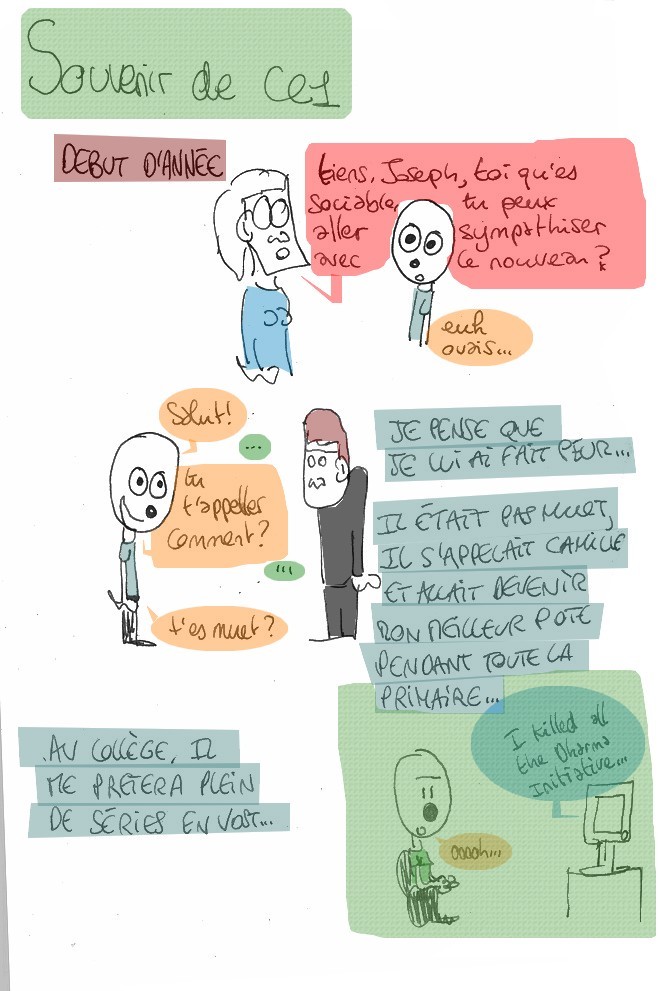 Souvenir de CE1
DEBUT D'ANNÉE
tiens, Joseph, toi qu'es
sociable, tu peux
aller sympathiser
avec le nouveau ?
euh
ouais...
Salut!
...
tu
t'appelles
comment?
...
t'es muet ?
JE PENSE QUE
JE LUI AI FAIT PEUR...
IL ÉTAIT PAS MUET,
IL S'APPELAIT CAMILLE
ET ALLAIT DEVENIR
MON MEILLEUR POTE
PENDANT TOUTE LA
PRIMAIRE...
AU COLLÈGE, IL
ME PRÊTERA PLEIN
DE SÉRIES EN VOST...
I killed all
the Dharma
Initiative...
ooooh...